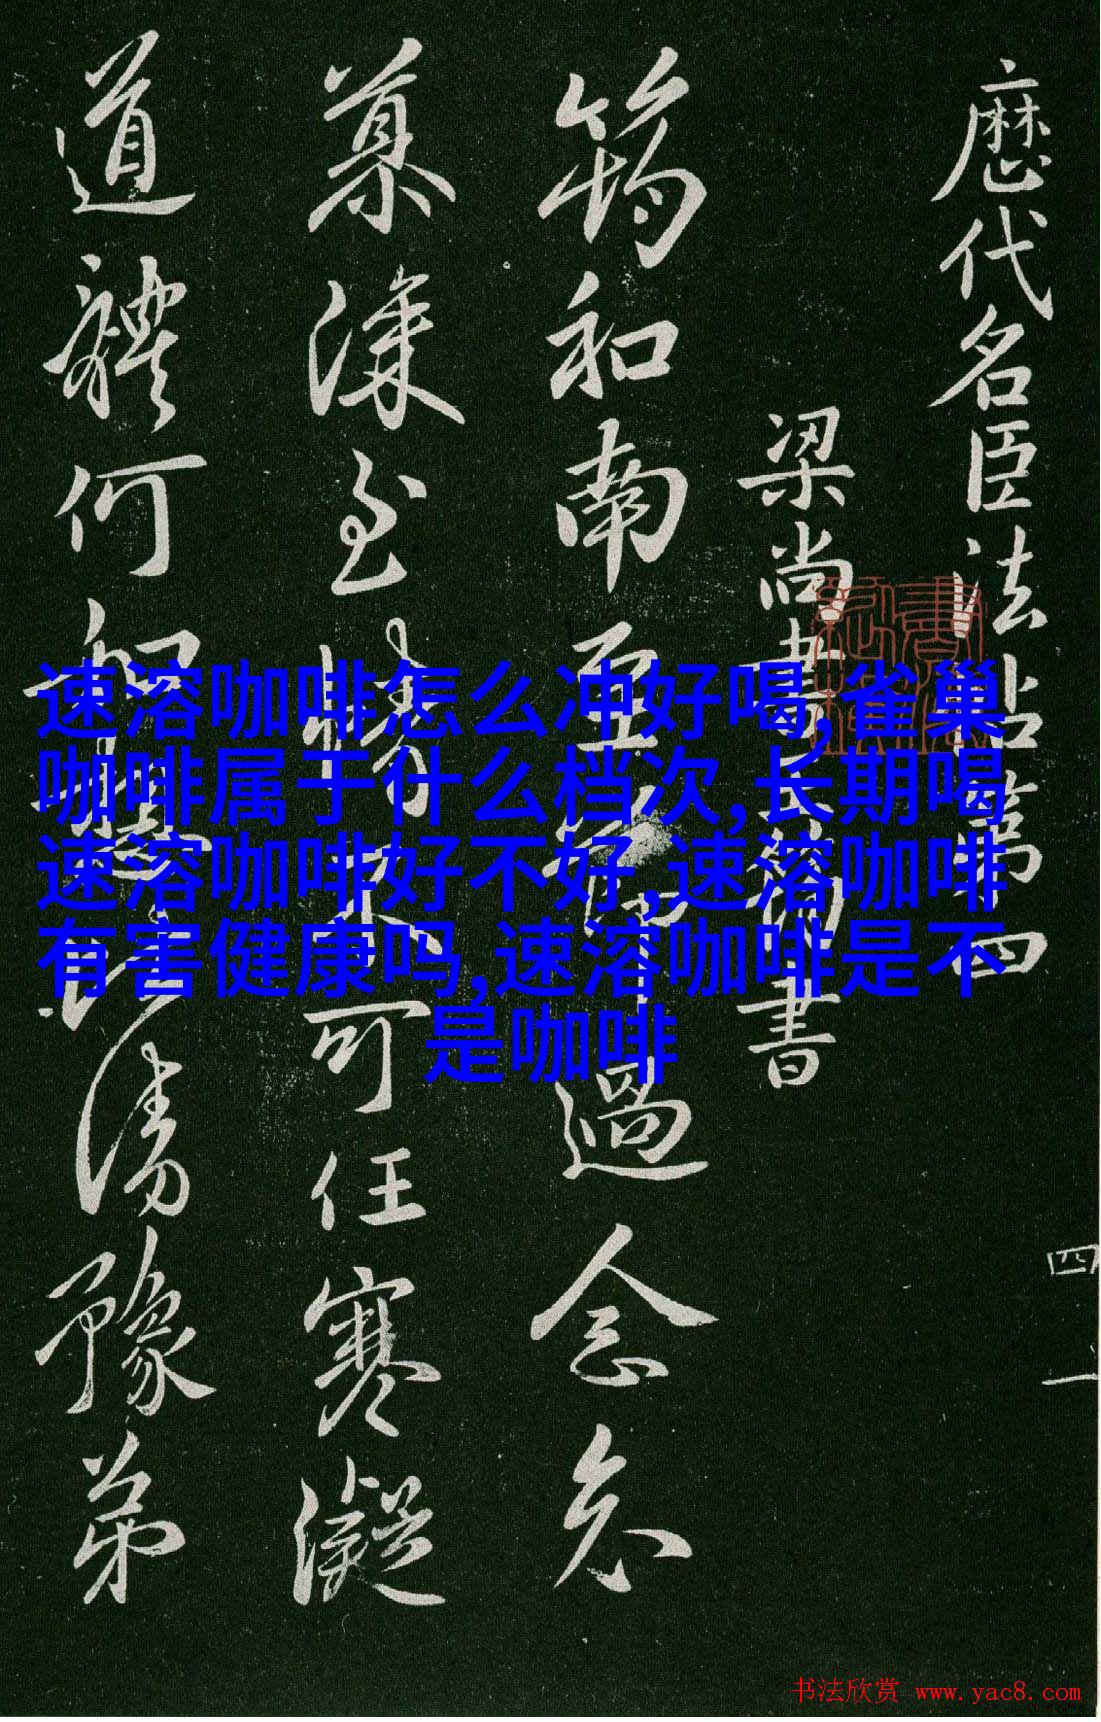 歷代名臣法帖第四
梁尚書王筠書
筠和南至節過念念
慕深至情不可任寒凝
道體何如想比清豫弟
速溶咖啡怎么冲好喝,雀巢
咖啡属于什么档次,长期喝
速溶咖啡好不好,速溶咖啡
有害健康吗,速溶咖啡是不
是咖啡
四
一
书法欣赏 www.yac8.com